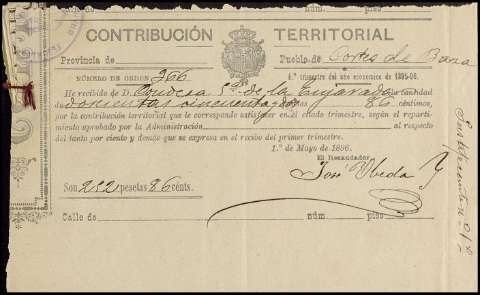 CONTRIBUCIÓN TERRITORIAL
Provincia de Pueblo de Cortes de Baza
NÚMERO DE ORDEN 266 4.º trimestre del año económico de 1895-96.
He recibido de D. Condesa de la la cantidad
de doscientas cincuenta y dos 86 céntimos,
por la contribución territorial que le corresponde satisfacer en el citado trimestre, según el reparti-
miento aprobado por la Administración al respecto
del tanto por ciento y demás que se expresa en el recibo del primer trimestre.
1.º de Mayo de 1896.
El Recaudador
José Ubeda
Son 252 pesetas 86 cénts.
Calle de núm. piso